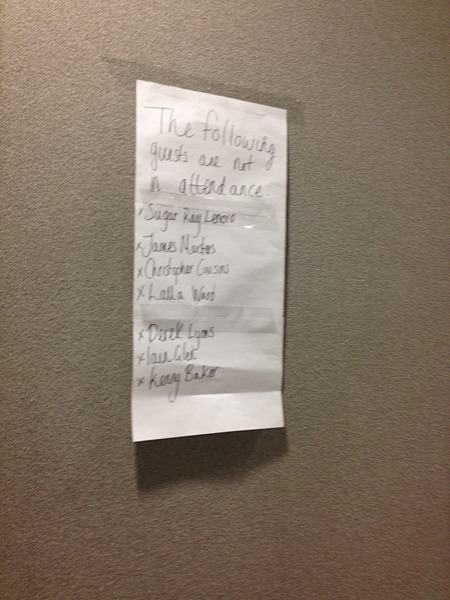 The following
guests are not
in attendance:
x Sugar Ray Lenord
x James Marters
x Christopher Cousins
x Lalla Ward
x Derek Lyons
x Iain Glen
x Kenny Baker